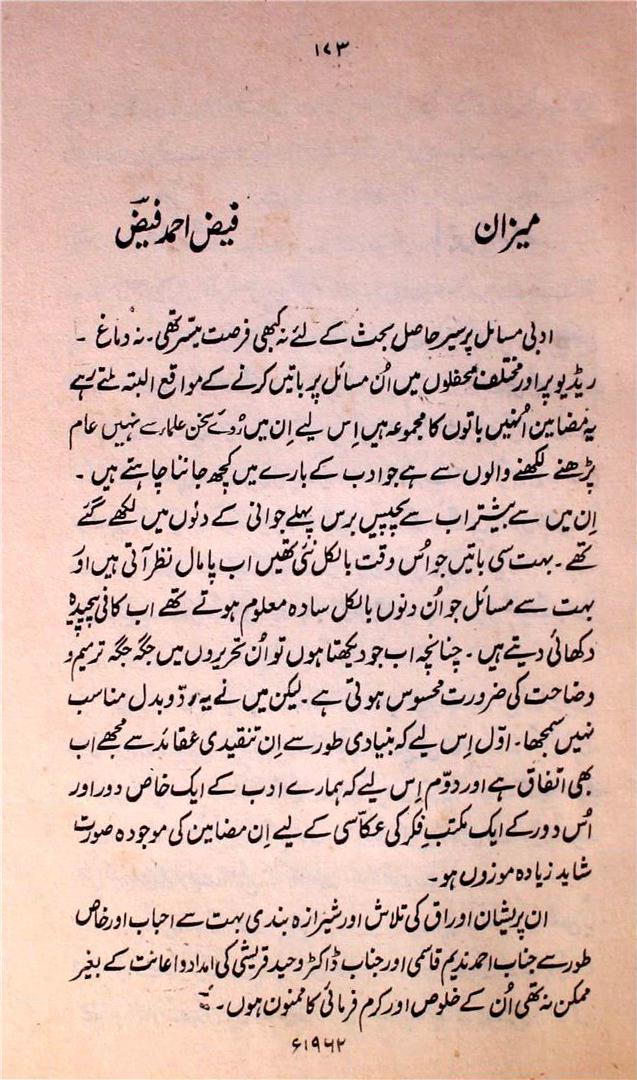 ۱۷۳
میزان
فیض احمد فیضؔ
ادبی مسائل پر سیر حاصل بحث کے لئے نہ کبھی فرصت میّسر تھی۔ نہ دماغ ۔
ریڈیو پر اور مختلف محفلوں میں اُن مسائل پر باتیں کرنے کے مواقع البتہ ملتے رہے
یہ مضامین اُنہیں باتوں کا مجموعہ ہیں اِس لیے اِن میں رُوئے سخن علماء سے نہیں عام
پڑھنے لکھنے والوں سے ہے جو ادب کے بارے میں کچھ جاننا چاہتے ہیں ۔
اِن میں سے بیشتر اب سے پچیس برس پہلے جوانی کے دنوں میں لکھے گئے
تھے ۔ بہت سی باتیں جو اُس وقت بالکل نئی تھیں اب پامال نظر آتی ہیں اور
بہت سے مسائل جو اُن دنوں بالکل سادہ معلوم ہوتے تھے اب کافی پیچیدہ
دکھائی دیتے ہیں ۔ چنانچہ اب جو دیکھتا ہوں تو اُن تحریروں میں جگہ جگہ ترمیم و
وضاحت کی ضرورت محسوس ہوتی ہے ۔ لیکن میں نے یہ ردّ و بدل مناسب
نہیں سمجھا ۔ اوّل اِس لیے کہ بنیادی طور سے اِن تنقیدی عقائد سے مجھے اب
بھی اتفاق ہے اور دوّم اِس لیے کہ ہمارے ادب کے ایک خاص دور اور
اُس دور کے ایک مکتبِ فکر کی عکاّسی کے لیے اِن مضامین کی موجودہ صورت
شاید زیادہ موزوں ہو ۔
ان پریشان اوراق کی تلاش اور شیرازہ بندی بہت سے احباب اور خاص
طور سے جناب احمد ندیم قاسمی اور جناب ڈاکٹر وحید قریشی کی امداد و اعانت کے بغیر
ممکن نہ تھی اُن کے خلوص اور کرم فرمائی کا ممنون ہوں ۔
۱۹۶۲ء